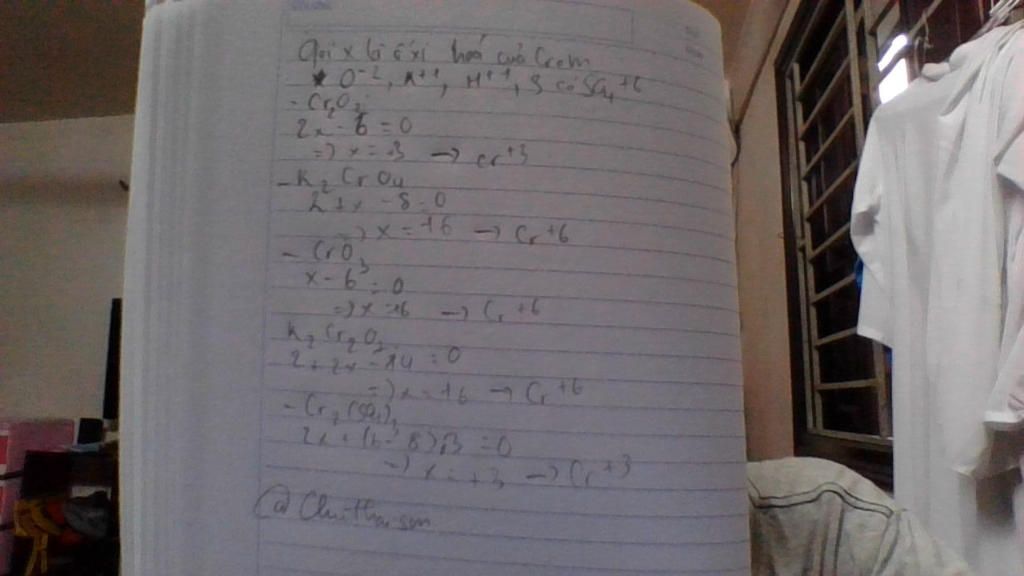 Gọi x là ôxi hoá của Crom
O⁻², K⁺¹, H⁺¹, S có SO₄ +6
- Cr₂O₃
2x - 6 = 0
=> x = +3 → Cr⁺³
- K₂CrO₄
2 + x - 8 = 0
=> x = +6 → Cr⁺⁶
- CrO₃
x - 6 = 0
=> x = +6 → Cr⁺⁶
K₂Cr₂O₇
2 + 2x - 14 = 0
=> x = +6 → Cr⁺⁶
- Cr₂(SO₄)₃
2x + (6 - 8)3 = 0
=> x = +3 → Cr⁺³